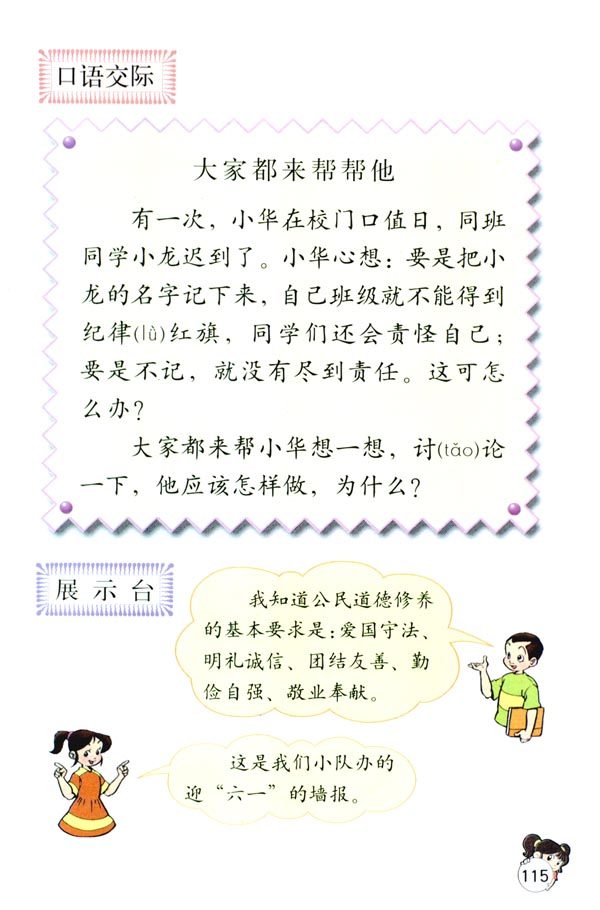 口语交际
大家都来帮帮他
有一次，小华在校门口值日，同班
同学小龙迟到了。小华心想：要是把小
龙的名字记下来，自己班级就不能得到
纪律(lǜ)红旗，同学们还会责怪自己；
要是不记，就没有尽到责任。这可怎
么办？
大家都来帮小华想一想，讨(tǎo)论
一下，他应该怎样做，为什么？
展示台
我知道公民道德修养
的基本要求是：爱国守法、
明礼诚信、团结友善、勤
俭自强、敬业奉献。
这是我们小队办的
迎“六一”的墙报。
115